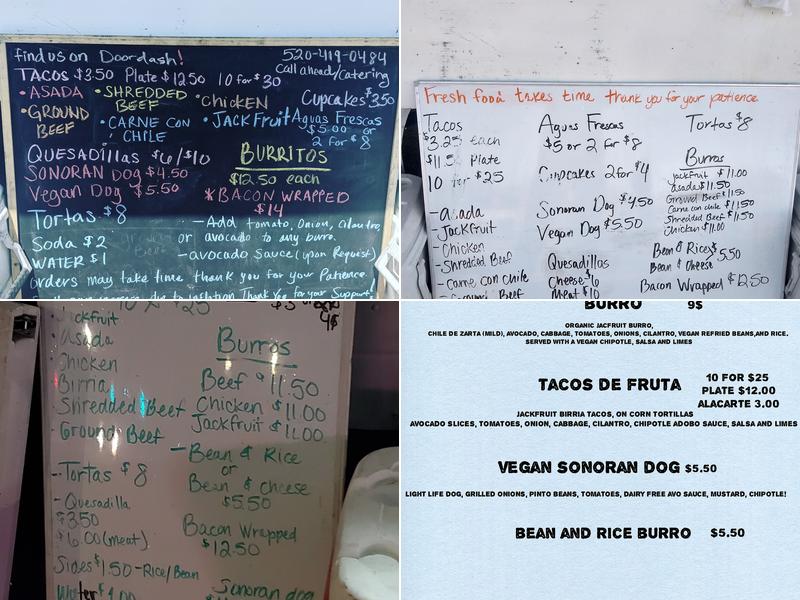 find us on Doordash!
520-419-0484
Call ahead/catering
TACOS $3.50 Plate $12.50 10 for $30
• ASADA
• SHREDDED BEEF
• CHICKEN
Cupcakes $3.50
• GROUND BEEF
• CARNE CON CHILE
• JACKFRUIT
Aguas Frescas
$5.00 or
2 for $8
QUESADILLAS $6/$10
SONORAN DOG $4.50
Vegan Dog $5.50
BURRITOS
$12.50 each
* BACON WRAPPED
$14
Tortas $8
Soda $2
WATER $1
- Add tomato, Onion, cilantro,
or avocado to any burro.
- avocado sauce (upon Request)
orders may take time thank you for your Patience.
due to inflation Thank You for your Support!
Fresh food takes time thank you for your patience.
Tacos
$3.25 each
$11.5 Plate
10 for $25
- Asada
- Jackfruit
- Chicken
- Shredded Beef
- Carne con chile
- Ground Beef
Aguas Frescas
$5 or 2 for $8
Cupcakes 2 for $4
Sonoran Dog $4.50
Vegan Dog $5.50
Quesadillas
Cheese - 6
Meat $10
Tortas $8
Burros
Jackfruit $11.00
Asada $11.50
Ground Beef $11.50
Carne con chile $11.50
Shredded Beef $11.50
Chicken $11.00
Bean & Rice $5.50
Bean & Cheese
Bacon Wrapped $12.50
10 x $25
4$
Jackfruit
• Asada
Chicken
Birria
Shredded Beef
• Ground Beef
- Tortas $8
- Quesadilla
$3.50
$6.00 (meat)
Sides $1.50 - Rice/Bean
Water $1.00
Burros
Beef $11.50
Chicken $11.00
Jackfruit $11.00
- Bean & Rice
or
Bean & cheese
$5.50
Bacon Wrapped
$12.50
Sonoran dog
BURRO 9$
ORGANIC JACFRUIT BURRO,
CHILE DE ZARTA (MILD), AVOCADO, CABBAGE, TOMATOES, ONIONS, CILANTRO, VEGAN REFRIED BEANS,AND RICE.
SERVED WITH A VEGAN CHIPOTLE, SALSA AND LIMES
TACOS DE FRUTA
10 FOR $25
PLATE $12.00
ALACARTE 3.00
JACKFRUIT BIRRIA TACOS, ON CORN TORTILLAS
AVOCADO SLICES, TOMATOES, ONION, CABBAGE, CILANTRO, CHIPOTLE ADOBO SAUCE, SALSA AND LIMES
VEGAN SONORAN DOG $5.50
LIGHT LIFE DOG, GRILLED ONIONS, PINTO BEANS, TOMATOES, DAIRY FREE AVO SAUCE, MUSTARD, CHIPOTLE!
BEAN AND RICE BURRO $5.50